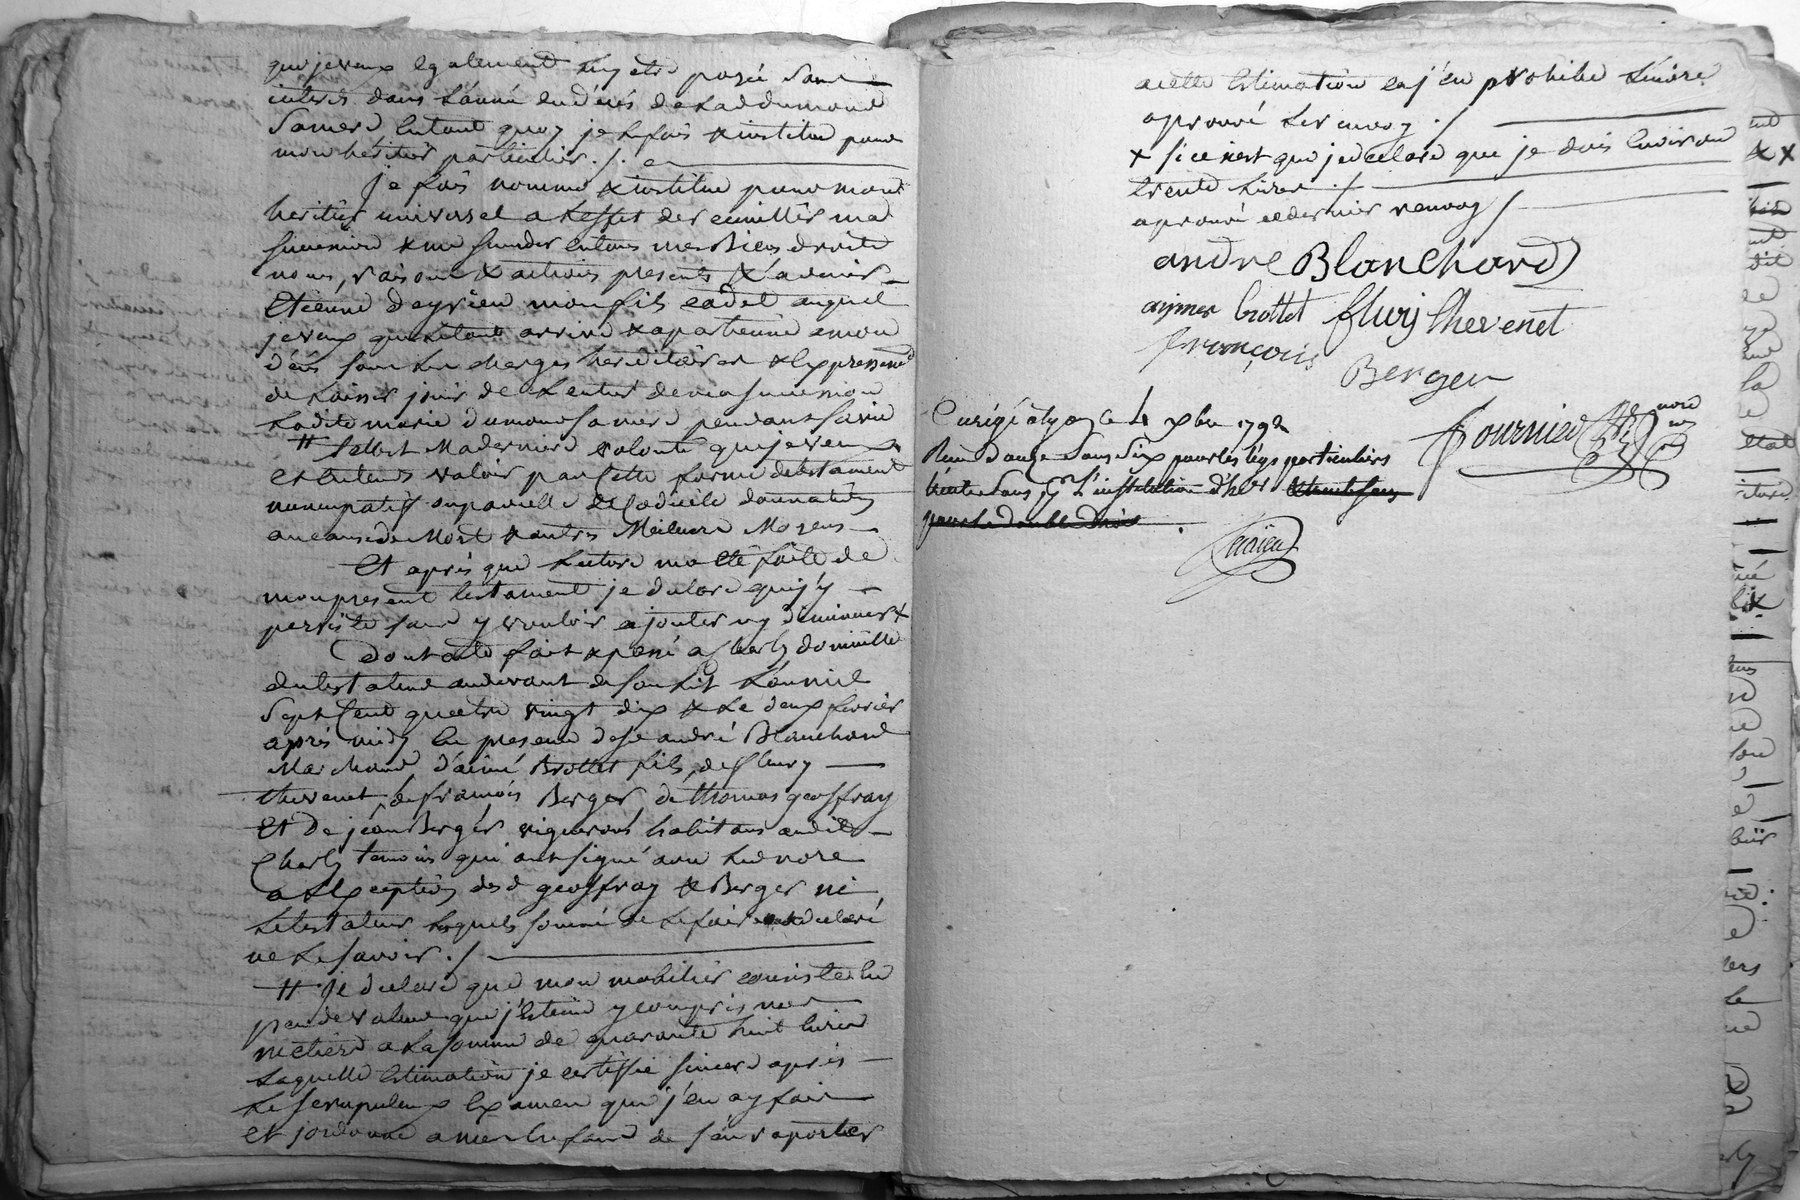 que je veux egalement luy etre payée sans
interets dans l'année du décés de lad dumond
sa mere lutant quoy je le fais & institue pour
mon heritier particulier ./.
Je fais nomme & institue pour mon
heritier universel a l'effet de recueillir ma
succession & me succeder en tous mes Biens droits
noms, raisons & actions presents & a venir
Etienne Deyrieu mon fils cadet auquel
je veux que le tout arrive & apartienne a mon
décés sous les charges hereditaires & expressement
de laisser jouir de l'entier de ma succession
ladite marie dumond sa mere pendant sa vie
# telle est Ma derniere volonté que je veux
et entends valoir par cette forme de testament
nuncupatif ou par celle de Codicile donnation
a cause de Mort & autres Meilleurs Moyens
Et aprés que lecture m'a eté faite de
mon present testament je declare que j'y
persiste sans y vouloir ajouter ny diminuer +
Dont acte fait & passé a Charly domicille
du testateur au devant de son lit l'an mil
sept Cent quatre vingt dix & le deux fevrier
aprés midy En presence de Sr andré Blanchard
Marchand d'aimé Brottet fils, de fleury
thevenet, de françois Berger, de thomas geoffray
Et De jean Berger vignerons habitans audit
Charly temoins qui ont signé avec led nore
a l'exception desd geoffray & Berger ni
le testateur lesquels sommé de le faire ont declaré
ne le savoir ./.
# Je declare que mon mobilier consiste en
peu de valeur que j'estime y compris mes
metiers a la somme de quarante huit livres
laquelle estimation je certifie sincere aprés
le scrupuleux Examen que j'en ay fait
et j'ordonne a mes heritiers de s'en raporter
a cette Estimation et j'en prohibe toute autre
aprouvé le renvoy ./
+ si ce n'est que je declare que je dois Environ
trente livres ./.
aprouvé ce dernier renvoy /
andre Blanchard
aymer brottet fleury thevenet
françois Berger
Fournier nore
Enrégé à lyon le 4 xbre 1792
Recu Douze sous six pour les legs particuliers
trente sous pr l'institution d'her
pour le double droit